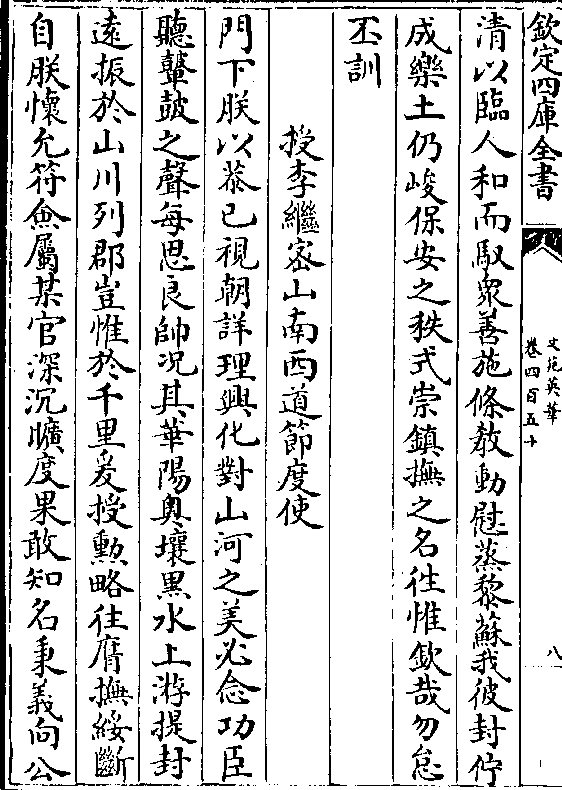 欽定四庫全書
文苑英華
卷四百五十
八
清以臨人和而馭衆善施條教動慰蒸黎蘇我彼封佇
成樂土仍峻保安之秩式崇鎮撫之名往惟欽哉勿怠
丕訓
授李繼密山南西道節度使
門下朕以恭已視朝詳理興化對山河之美必念功臣
聽鼙鼓之聲每思良帥况其華陽奥壤黒水上游提封
逺振於山川列郡豈惟於千里爰授勲略往膺撫綏斷
自朕懷允符僉屬某官深沉曠度果敢知名秉義向公